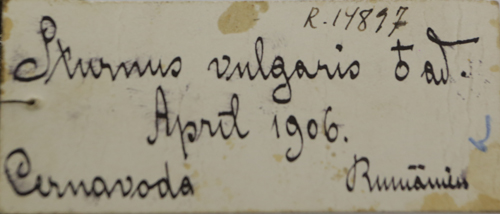 R.14897
Sturnus vulgaris ♂ ad.
April 1906.
Cernavoda Rumänien